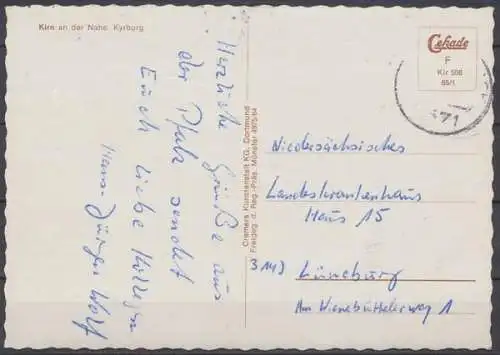 Kirn an der Nahe. Kyrburg
Herzliche Grüße aus
der Pfalz sendet
Euch liebe Kollegen
Hans-Jürgen Wolf
Cramers Kunstanstalt KG, Dortmund
Freigeg. d. Reg.-Präs. Münster 4975/64
Cekade
F
Kir 506
65/1
71
Niedersächsisches
Landeskrankenhaus
Haus 15
314 Lüneburg
Am Wienebütteler weg 1